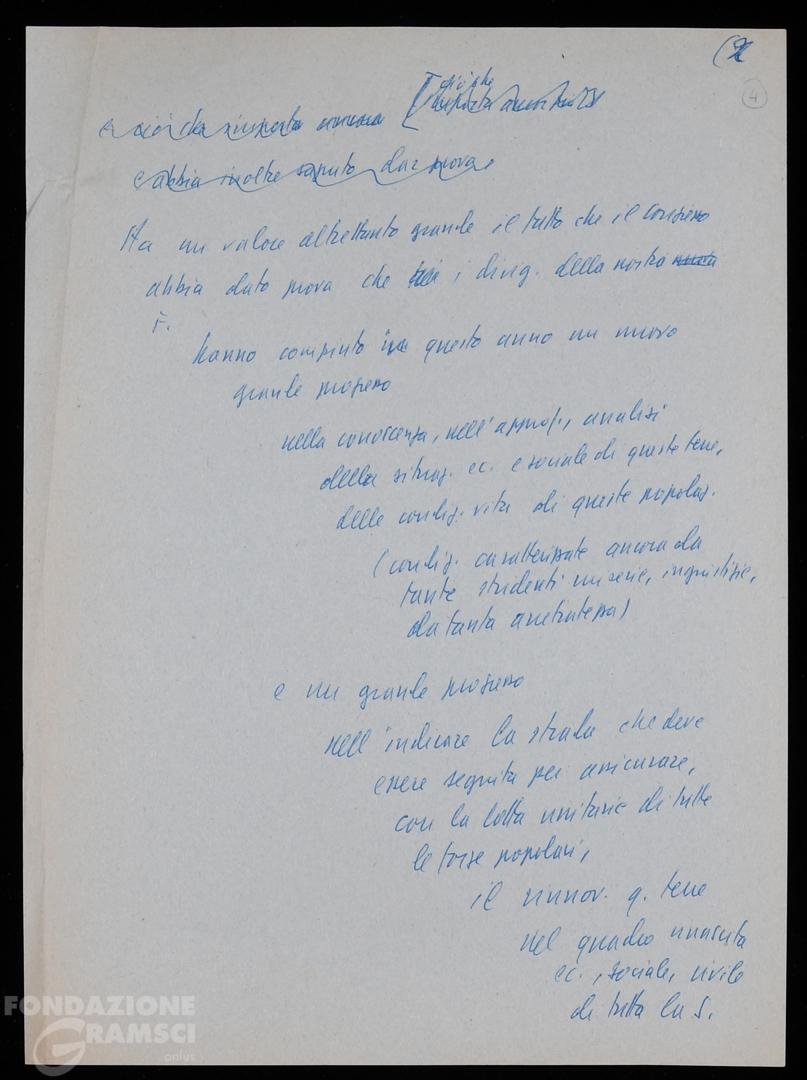 (2
4
e abbia inoltre saputo dar prova
Ha un valore altrettanto grande il fatto che il congresso
abbia dato prova che i dirig. della nostra
F.
hanno compiuto in questo anno un nuovo
grande progresso
nella conoscenza, nell'approf., analisi
della situaz. ec. e sociale di queste terre,
delle condiz. vita di queste popolaz.
(condiz. caratterizzate ancora da
tante stridenti miserie, ingiustizie,
da tanta arretratezza)
e un grande progresso
nell'indicare la strada che deve
essere seguita per assicurare,
con la lotta unitaria di tutte
le forze popolari,
il rinnov. q. terre
nel quadro rinascita
ec., sociale, civile
di tutta la S.
FONDAZIONE
GRAMSCI
onlus